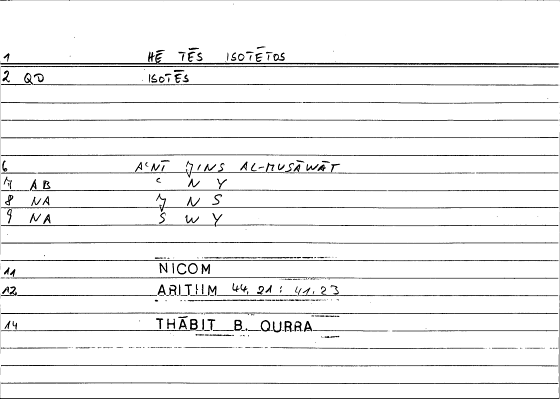 1 HĒ TĒS ISOTĒTOS
2 QD ISOTĒS
6 AʿNĪ ǦINS AL-MUSĀWĀT
7 AB ʿ N Y
8 NA Ǧ N S
9 NA S W Y
11 NICOM
12 ARITHM 44, 21 : 41, 23
14 THĀBIT B. QURRA